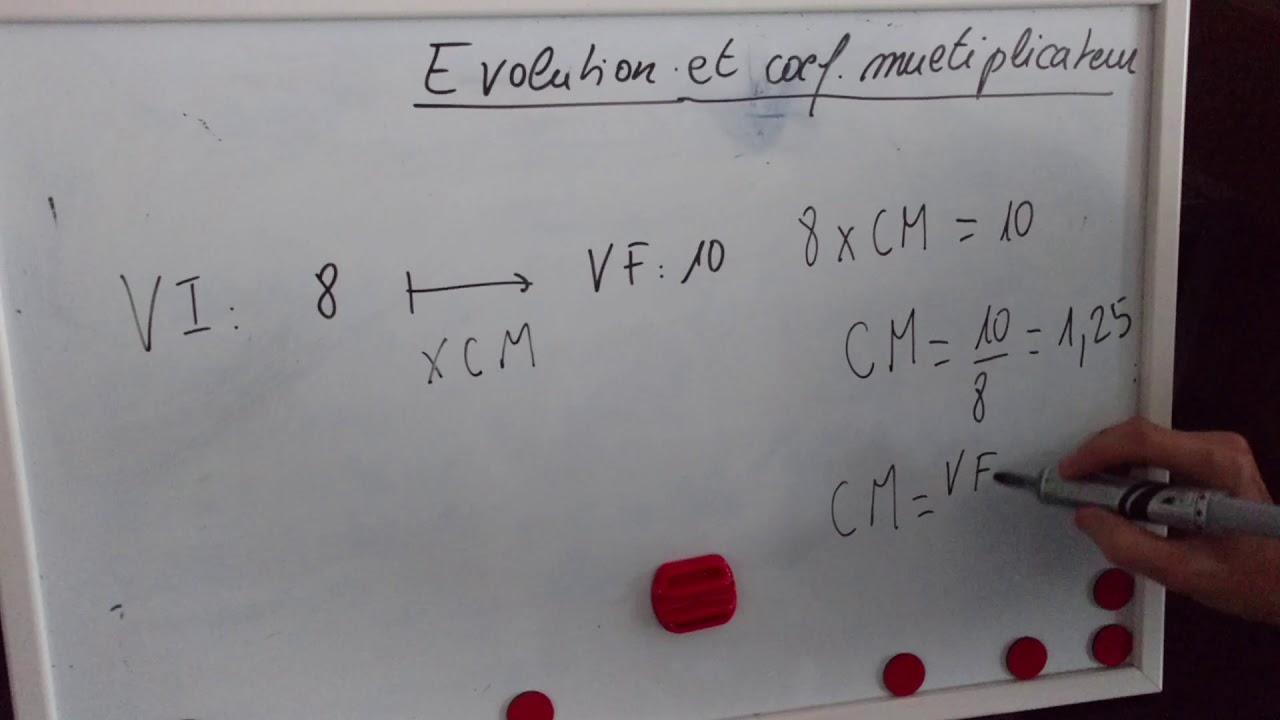 Evolution et coef. multiplicateur
VI: 8 ⟼ VF: 10
×CM
8×CM = 10
CM = 10/8 = 1,25
CM = VF